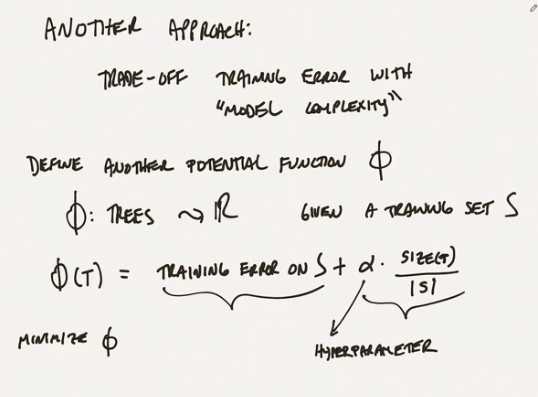 ANOTHER APPROACH:
TRADE-OFF TRAINING ERROR WITH
"MODEL COMPLEXITY"
DEFINE ANOTHER POTENTIAL FUNCTION ϕ
ϕ: TREES ⤳ ℝ GIVEN A TRAINING SET S
ϕ(T) = TRAINING ERROR ON S + α · SIZE(T) / |S|
MINIMIZE ϕ
HYPERPARAMETER